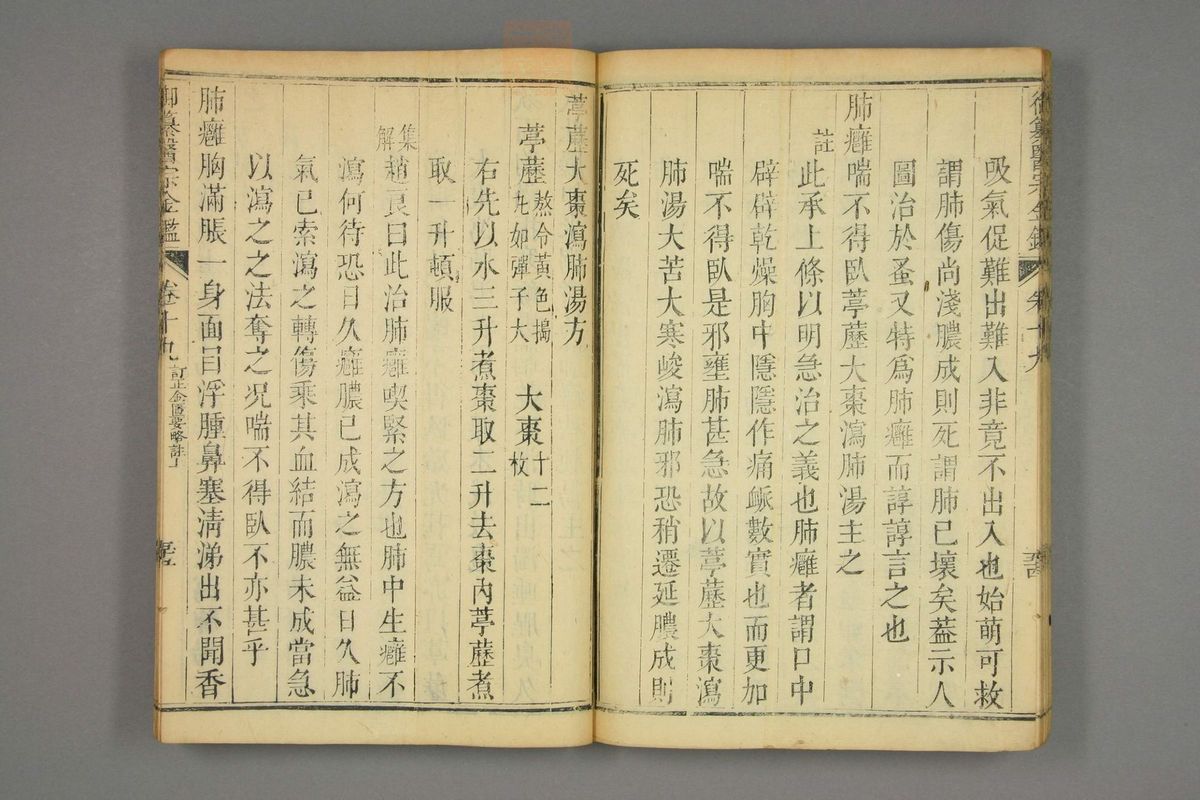 吸氣促難出難入非竟不出入也始萌可救
謂肺傷尚淺膿成則死謂肺已壞矣蓋示人
圖治於蚤又特爲肺癰而諄諄言之也
肺癰喘不得臥葶藶大棗瀉肺湯主之
註
此承上條以明急治之義也肺癰者謂口中
辟辟乾燥胸中隱隱作痛脈數實也而更加
喘不得臥是邪壅肺甚急故以葶藶大棗瀉
肺湯大苦大寒峻瀉肺邪恐稍遷延膿成則
死矣
葶藶大棗瀉肺湯方
葶藶
熬令黃色搗
丸如彈子大
大棗
十二
枚
右先以水三升煮棗取二升去棗內葶藶煮
取一升頓服
集
解
趙良曰此治肺癰喫緊之方也肺中生癰不
瀉何待恐日久癰膿已成瀉之無益日久肺
氣已索瀉之轉傷乘其血結而膿未成當急
以瀉之之法奪之况喘不得臥不亦甚乎
肺癰胸滿脹一身面目浮腫鼻塞淸涕出不聞香
御纂醫宗金鑑
卷十九
訂正金匱要略註